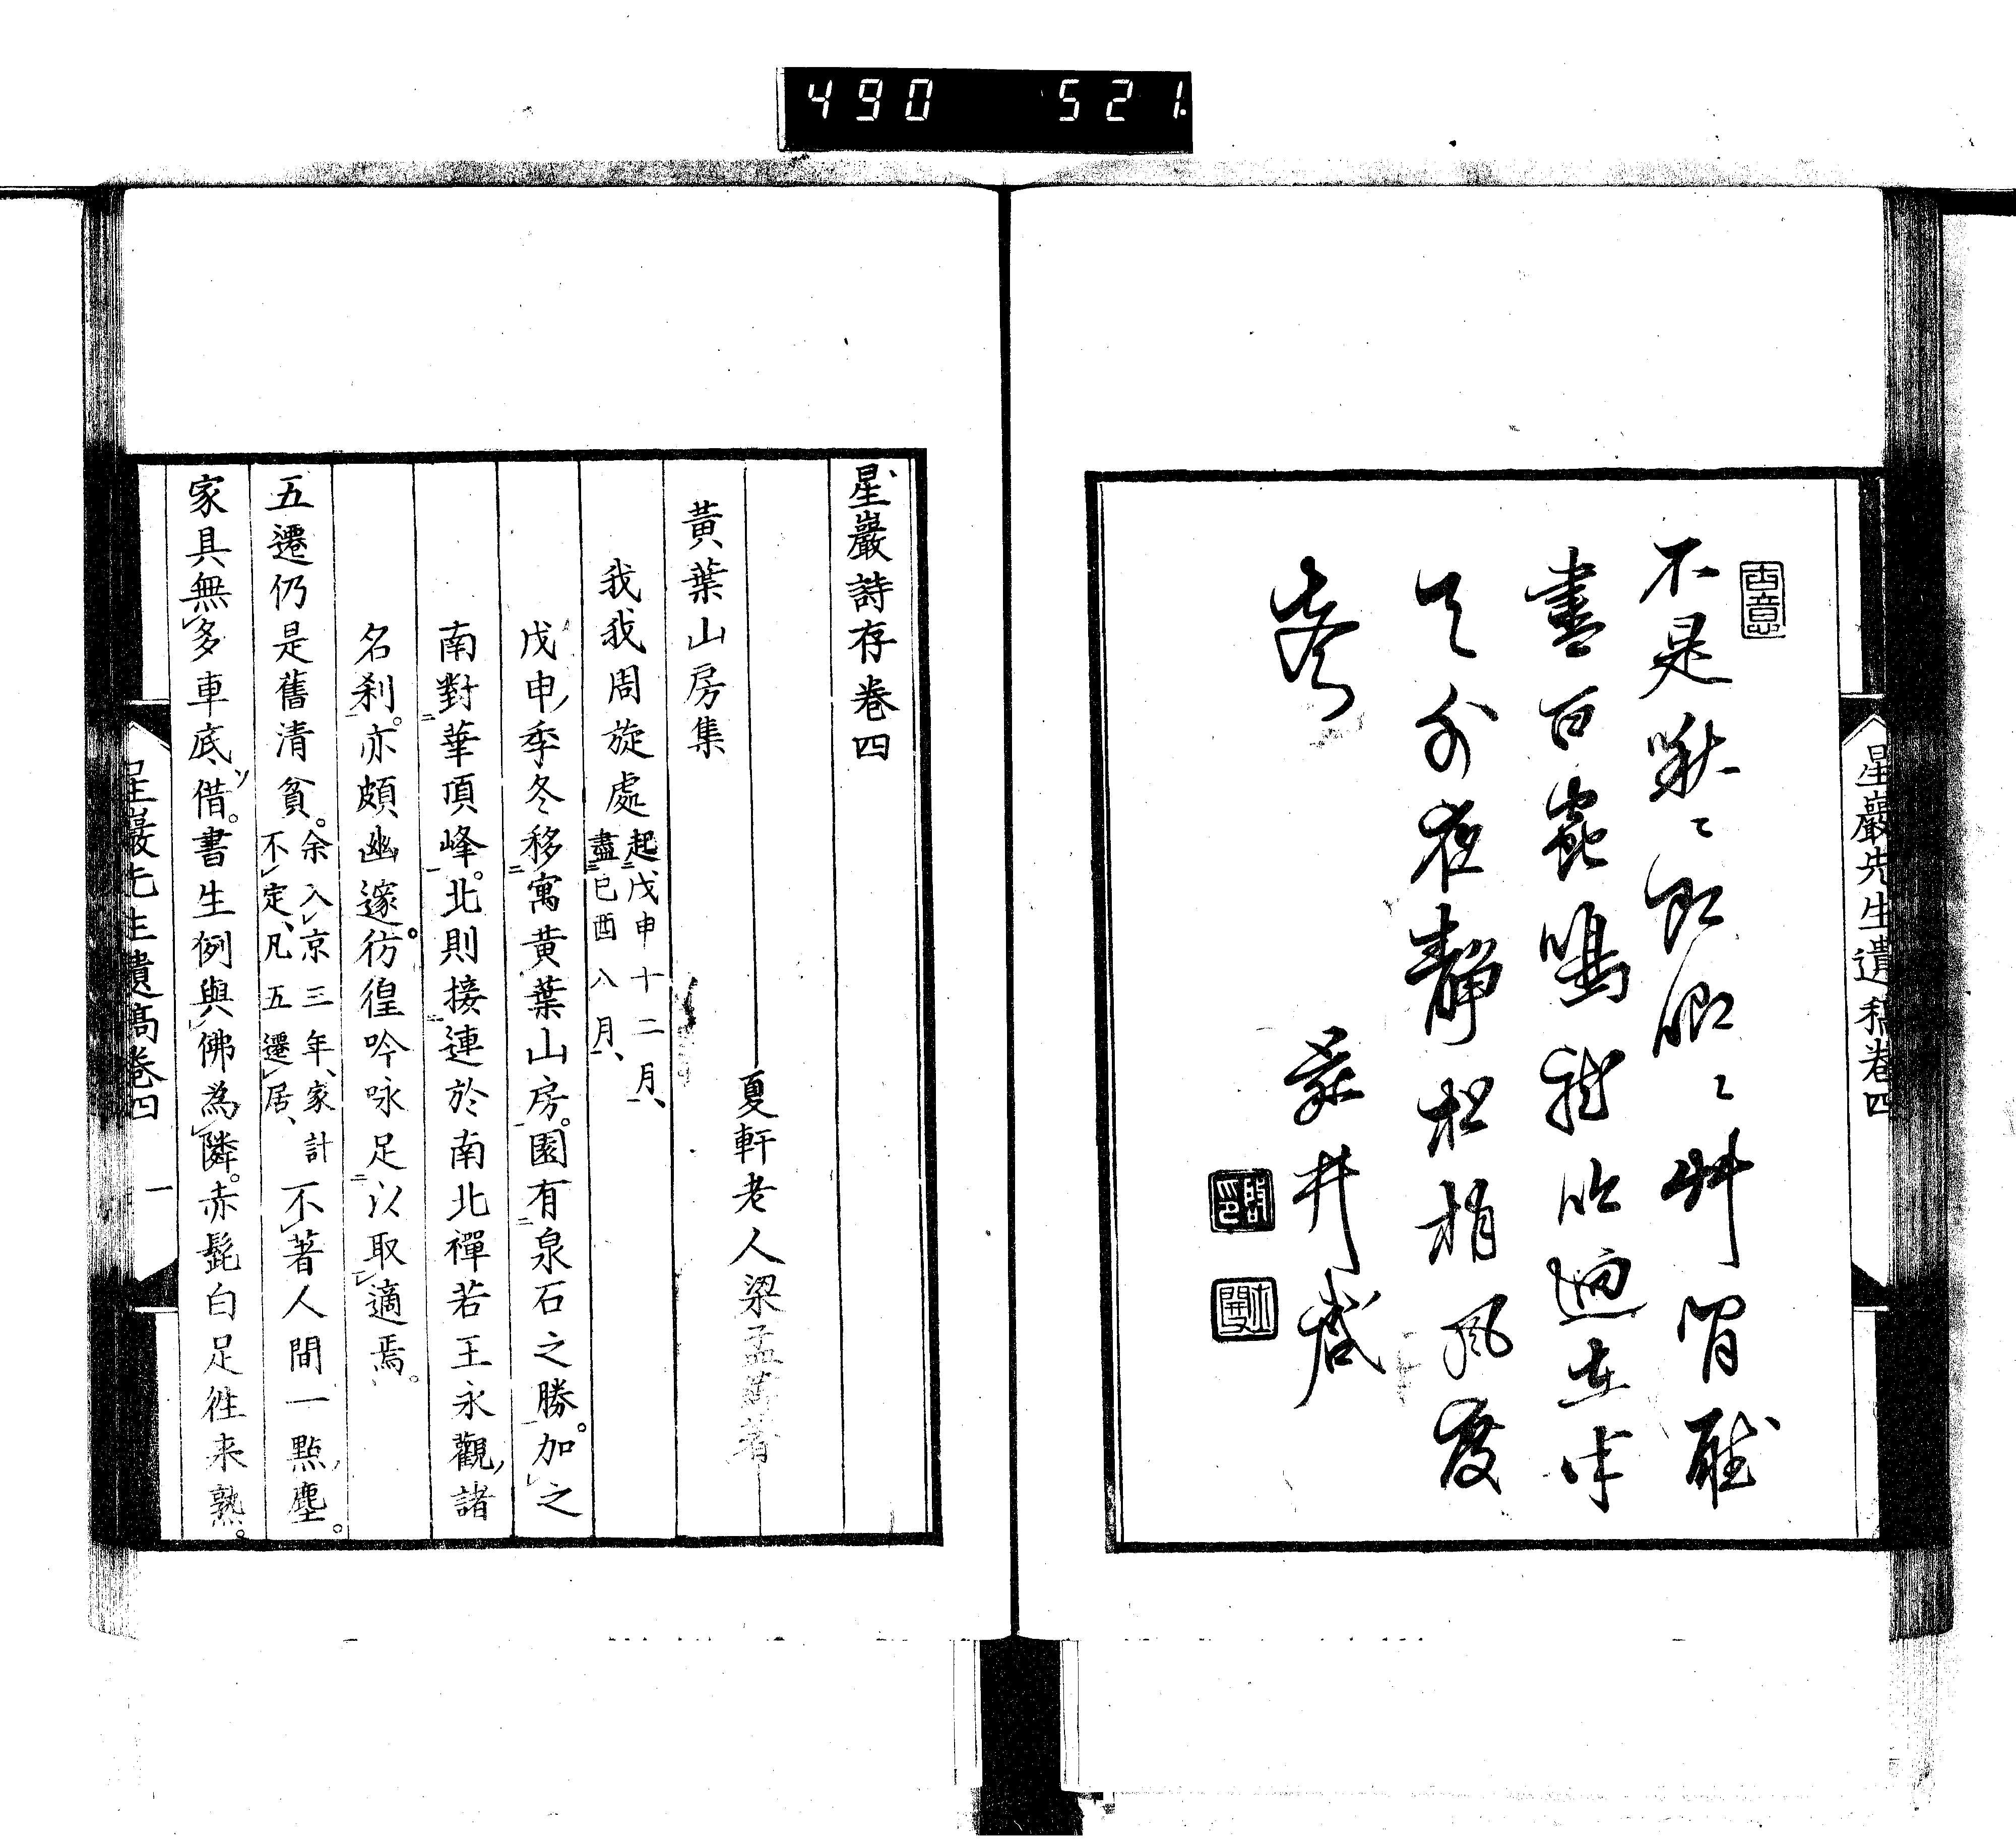 490 521
星巖先生遺稿卷四
古意
不是啾〻即喞〻艸間聲
盡百蟲鳴
夜靜松梢風度
星巖詩存卷四
夏軒老人梁孟緯著
黃葉山房集
我我周旋處 起戊申十二月、盡己酉八月、
戊申季冬移寓黄葉山房。園有泉石之勝。加之
南對華頂峰。北則接連於南北禪若王永觀諸
名刹。亦頗幽邃。彷徨吟咏足以取適焉。
五遷仍是舊清貧。余入京三年、家計不定、凡五遷居、不著人間一點塵。
家具無多車底借。書生例與佛為隣。赤髭白足徃来熟。
星巖先生遺稿卷四 一